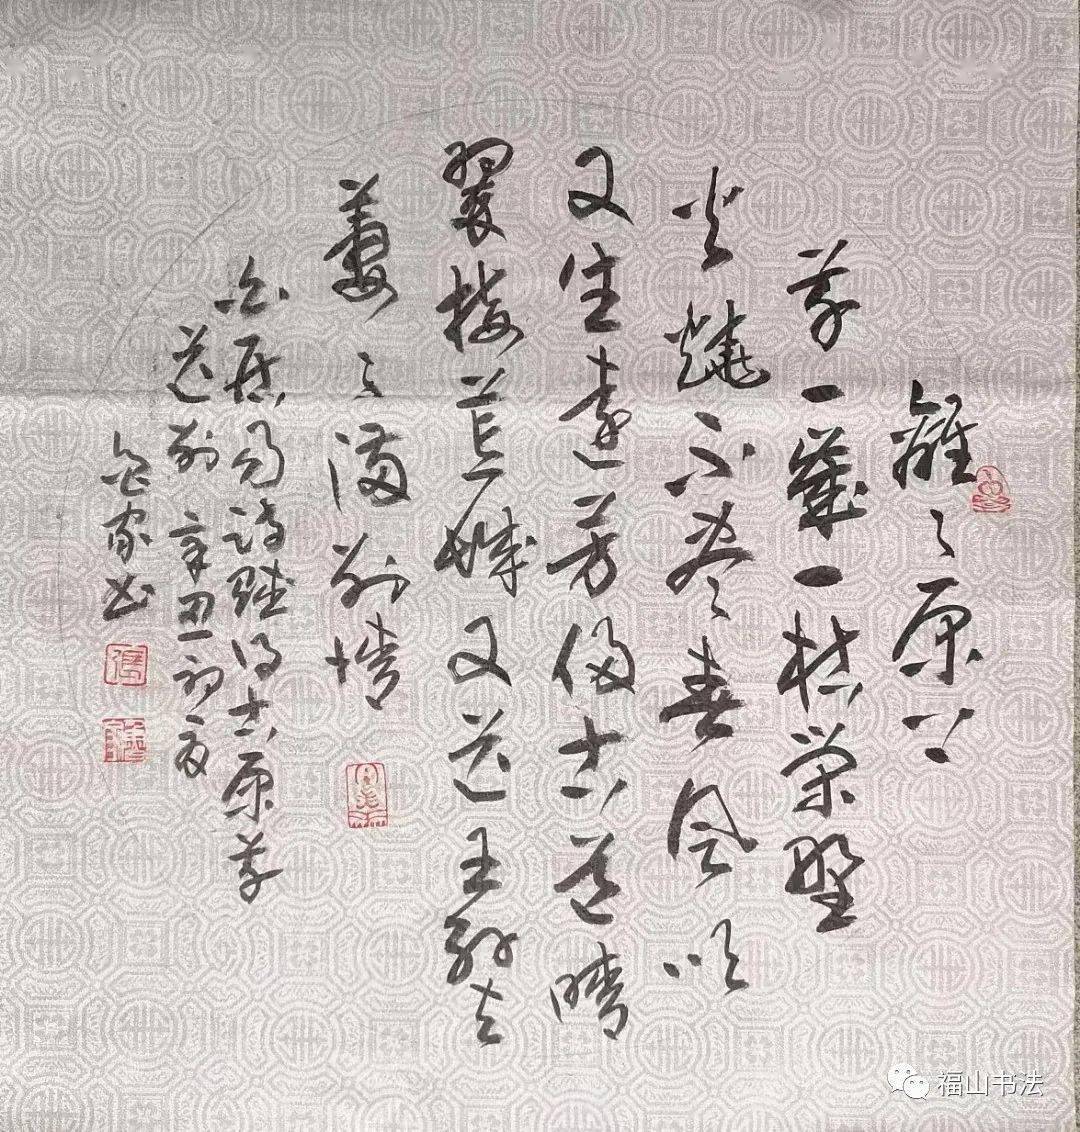 離〻原上
草一歲一枯榮野
火燒不盡春風吹
又生遠芳侵古道晴
翠接荒城又送王孫去
萋〻滿別情
白居易詩賦得古原草
送別 辛丑初夏
家书
福山书法